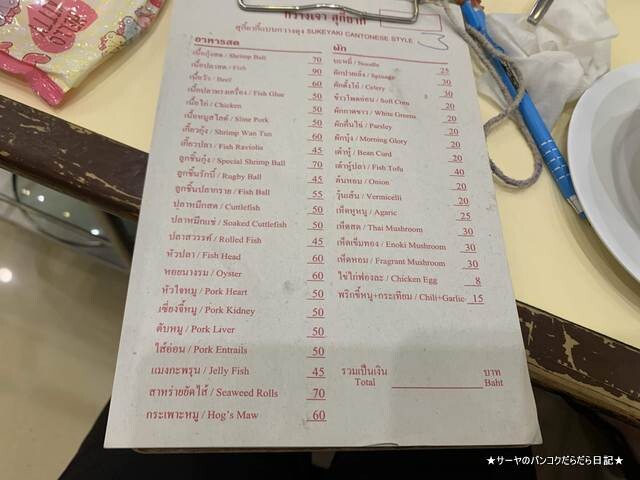 กวางเจา สุกี้ยากี้
สุกี้ยากี้แบบกวางตุ้ง SUKEYAKI CANTONESE STYLE
3
อาหารสด
เนื้อกุ้งสด / Shrimp Ball 70
เนื้อปลาสด / Fish 90
เนื้อวัว / Beef 60
เนื้อปลาทรงเครื่อง / Fish Glue 50
เนื้อไก่ / Chicken 50
เนื้อหมูสไลด์ / Sline Pork 50
เกี๊ยวกุ้ง / Shrimp Wan Tun 60
เกี๊ยวปลา / Fish Raviolia 45
ลูกชิ้นกุ้ง / Special Shrimp Ball 70
ลูกชิ้นรักบี้ / Rugby Ball 45
ลูกชิ้นปลากราย / Fish Ball 55
ปลาหมึกสด / Cuttlefish 50
ปลาหมึกแช่ / Soaked Cuttlefish 50
ปลาสวรรค์ / Rolled Fish 45
หัวปลา / Fish Head 60
หอยนางรม / Oyster 60
หัวใจหมู / Pork Heart 50
เซี่ยงจี๊หมู / Pork Kidney 50
ตับหมู / Pork Liver 50
ไส้อ่อน / Pork Entrails 50
แมงกะพรุน / Jelly Fish 45
สาหร่ายยัดไส้ / Seaweed Rolls 70
กระเพาะหมู / Hog's Maw 60
ผัก
บะหมี่ / Noodle 25
ผักปวยเล้ง / Spinage 30
ผักตั้งโอ๋ / Celery 30
ข้าวโพดอ่อน / Soft Corn 20
ผักกาดขาว / White Greens 20
ผักคื่นไฉ่ / Parsley 20
ผักบุ้ง / Morning Glory 20
เต้าหู้ / Bean Curd 20
เต้าหู้ปลา / Fish Tofu 40
ต้นหอม / Onion 20
วุ้นเส้น / Vermicelli 20
เห็ดหูหนู / Agaric 25
เห็ดสด / Thai Mushroom 30
เห็ดเข็มทอง / Enoki Mushroom 30
เห็ดหอม / Fragrant Mushroom 30
ไข่ไก่ฟองละ / Chicken Egg 8
พริกขี้หนู+กระเทียม / Chili+Garlic 15
รวมเป็นเงิน บาท
Total Baht
★サーヤのバンコクだらだら日記★